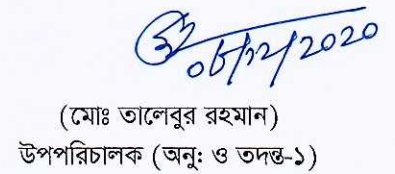 ০৮/১২/2020
(মোঃ তালেবুর রহমান)
উপপরিচালক (অনু: ও তদন্ত-১)